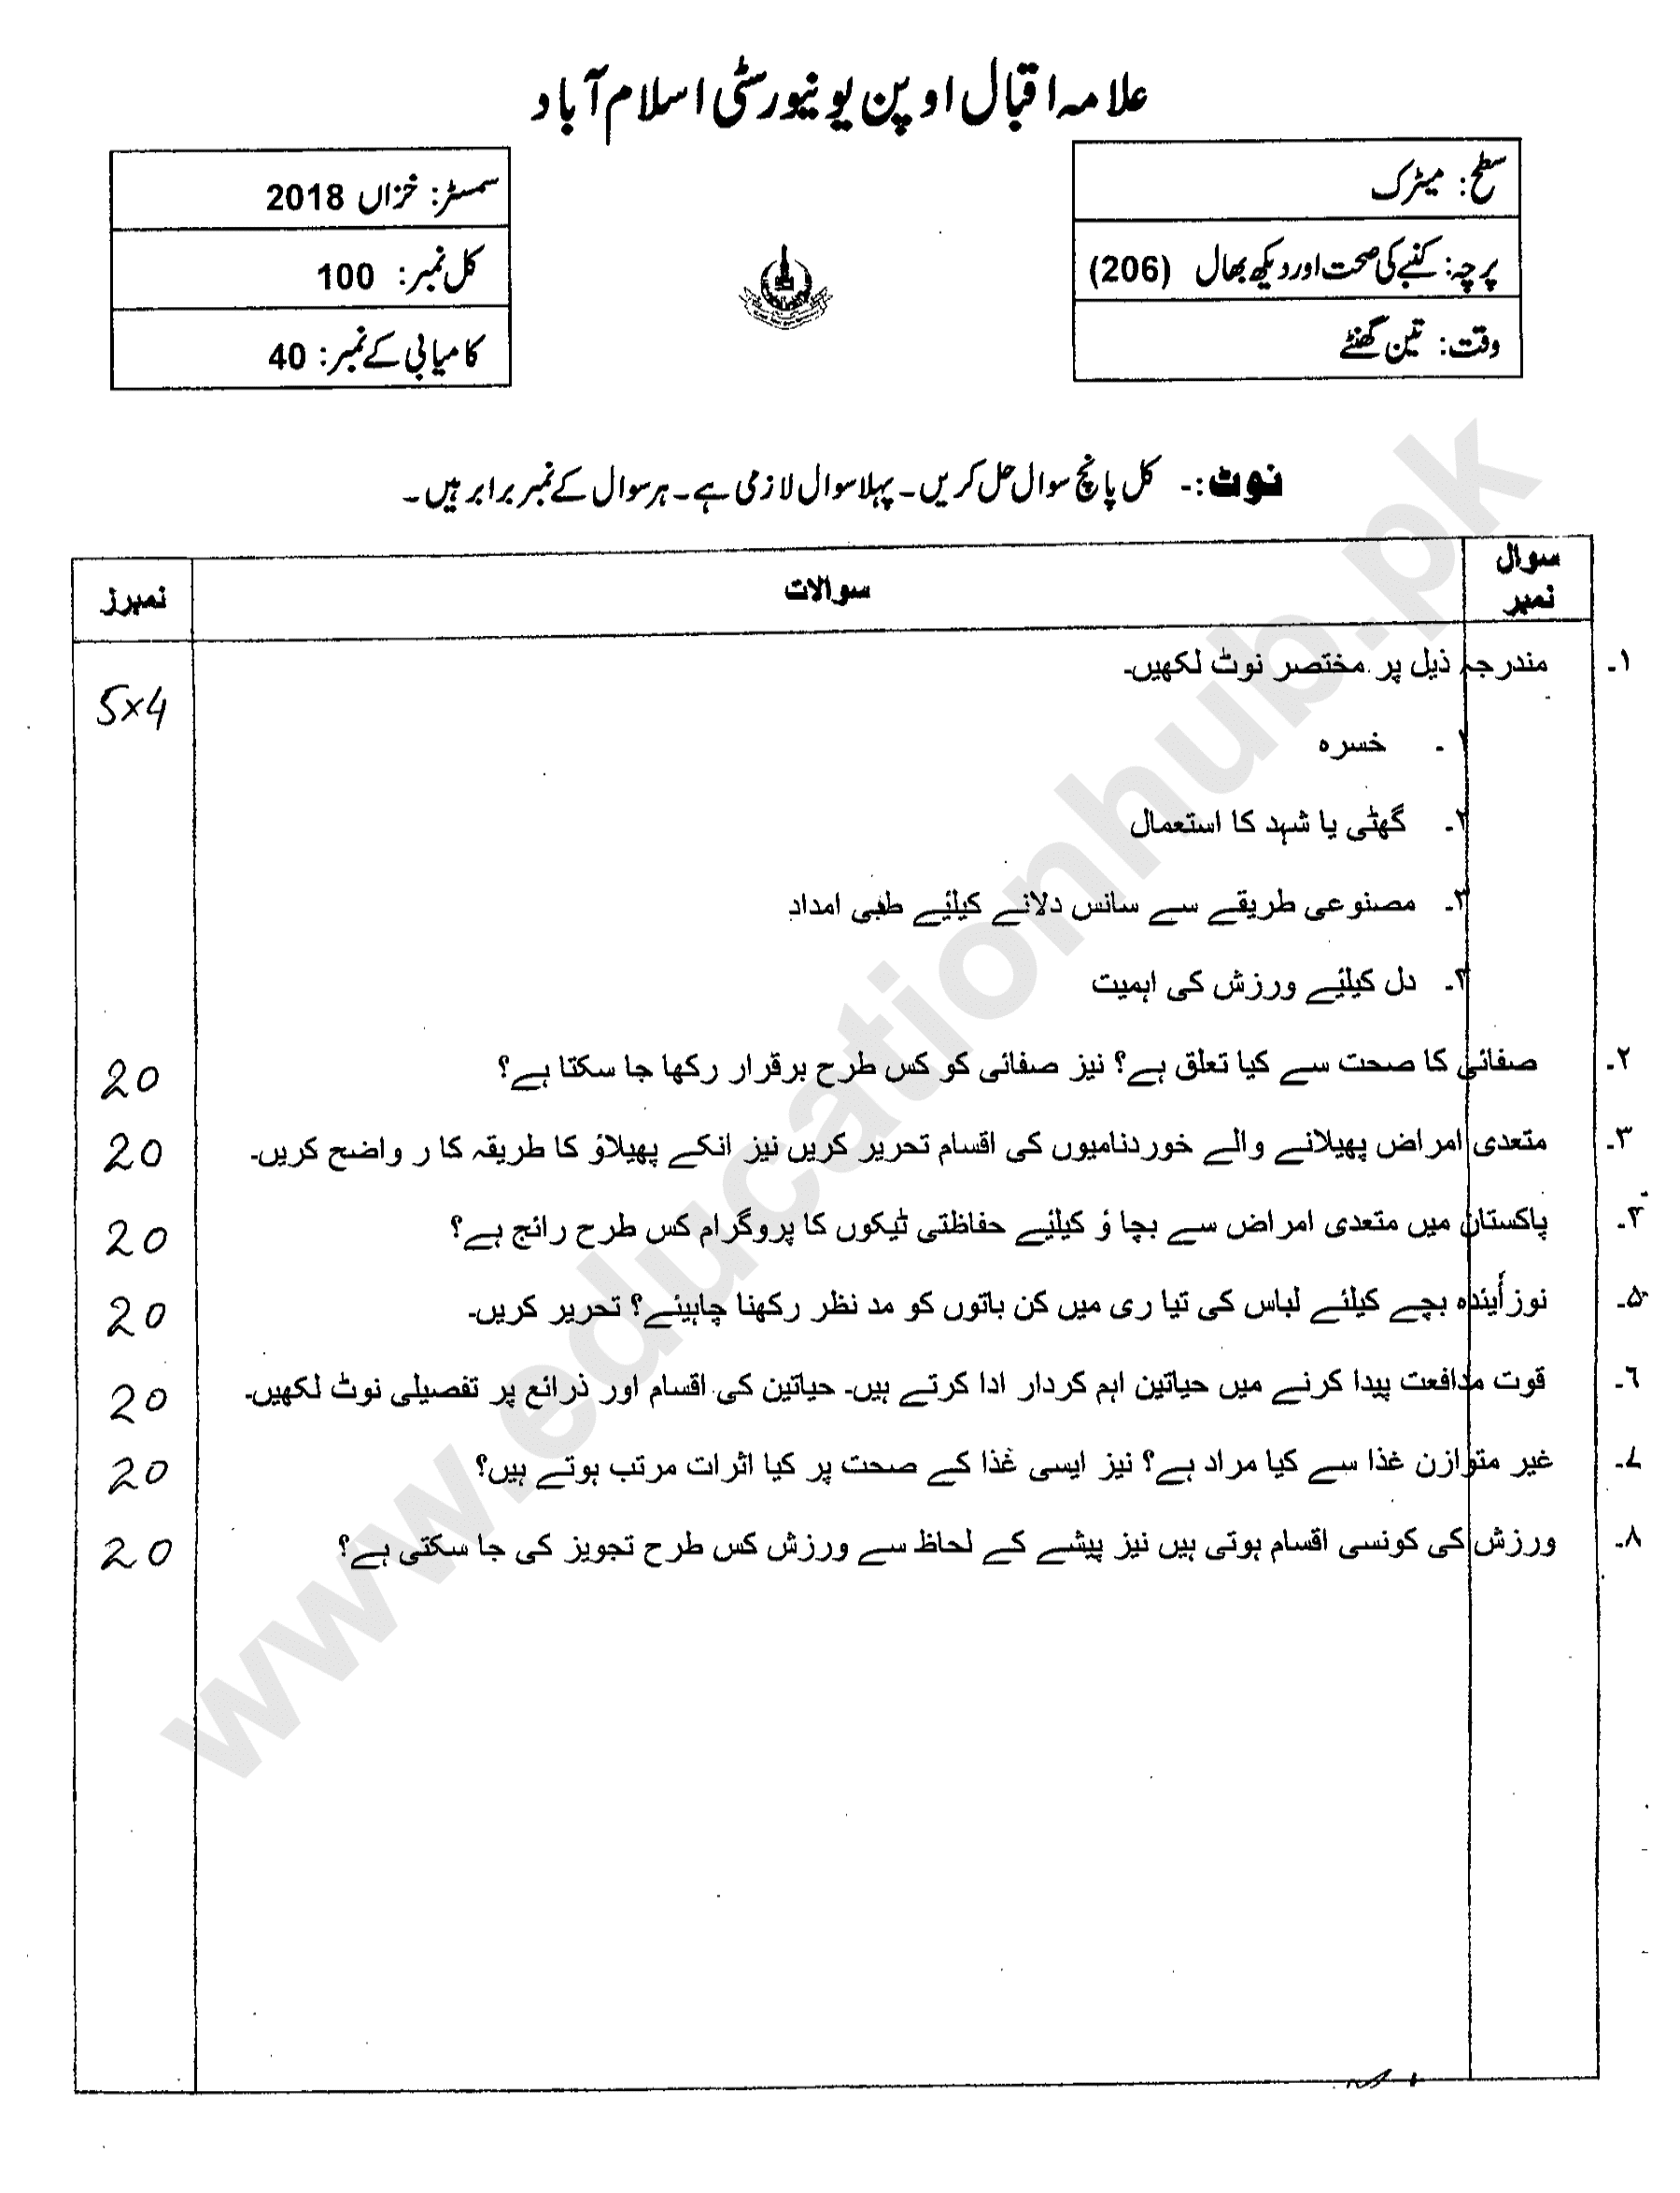 علامہ اقبال اوپن یونیورسٹی اسلام آباد
سطح: میٹرک
پرچہ: کنبے کی صحت اور دیکھ بھال (206)
وقت: تین گھنٹے
سمسٹر: خزاں 2018
کل نمبر: 100
کامیابی کے نمبر: 40
نوٹ:۔ کل پانچ سوال حل کریں۔ پہلا سوال لازمی ہے۔ ہر سوال کے نمبر برابر ہیں۔
سوال نمبر سوالات نمبرز
۱۔ مندرجہ ذیل پر مختصر نوٹ لکھیں۔ 5×4
۱۔ خسرہ
۲۔ گھٹی یا شہد کا استعمال
۳۔ مصنوعی طریقے سے سانس دلانے کیلئے طبی امداد
۴۔ دل کیلئے ورزش کی اہمیت
۲۔ صفائی کا صحت سے کیا تعلق ہے؟ نیز صفائی کو کس طرح برقرار رکھا جا سکتا ہے؟ 20
۳۔ متعدی امراض پھیلانے والے خوردنامیوں کی اقسام تحریر کریں نیز انکے پھیلاؤ کا طریقہ کا ر واضح کریں۔ 20
۴۔ پاکستان میں متعدی امراض سے بچا ؤ کیلئے حفاظتی ٹیکوں کا پروگرام کس طرح رائج ہے؟ 20
۵۔ نوزأیندہ بچے کیلئے لباس کی تیا ری میں کن باتوں کو مد نظر رکھنا چاہیئے؟ تحریر کریں۔ 20
٦۔ قوت مدافعت پیدا کرنے میں حیاتین اہم کردار ادا کرتے ہیں۔ حیاتین کی اقسام اور ذرائع پر تفصیلی نوٹ لکھیں۔ 20
۷۔ غیر متوازن غذا سے کیا مراد ہے؟ نیز ایسی غذا کے صحت پر کیا اثرات مرتب ہوتے ہیں؟ 20
۸۔ ورزش کی کونسی اقسام ہوتی ہیں نیز پیشے کے لحاظ سے ورزش کس طرح تجویز کی جا سکتی ہے؟ 20
www.educationhub.pk